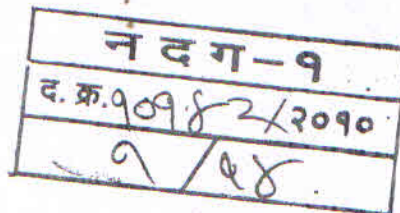 नंदग-१
द. क्र.१०१४२/२०१०
१/५४